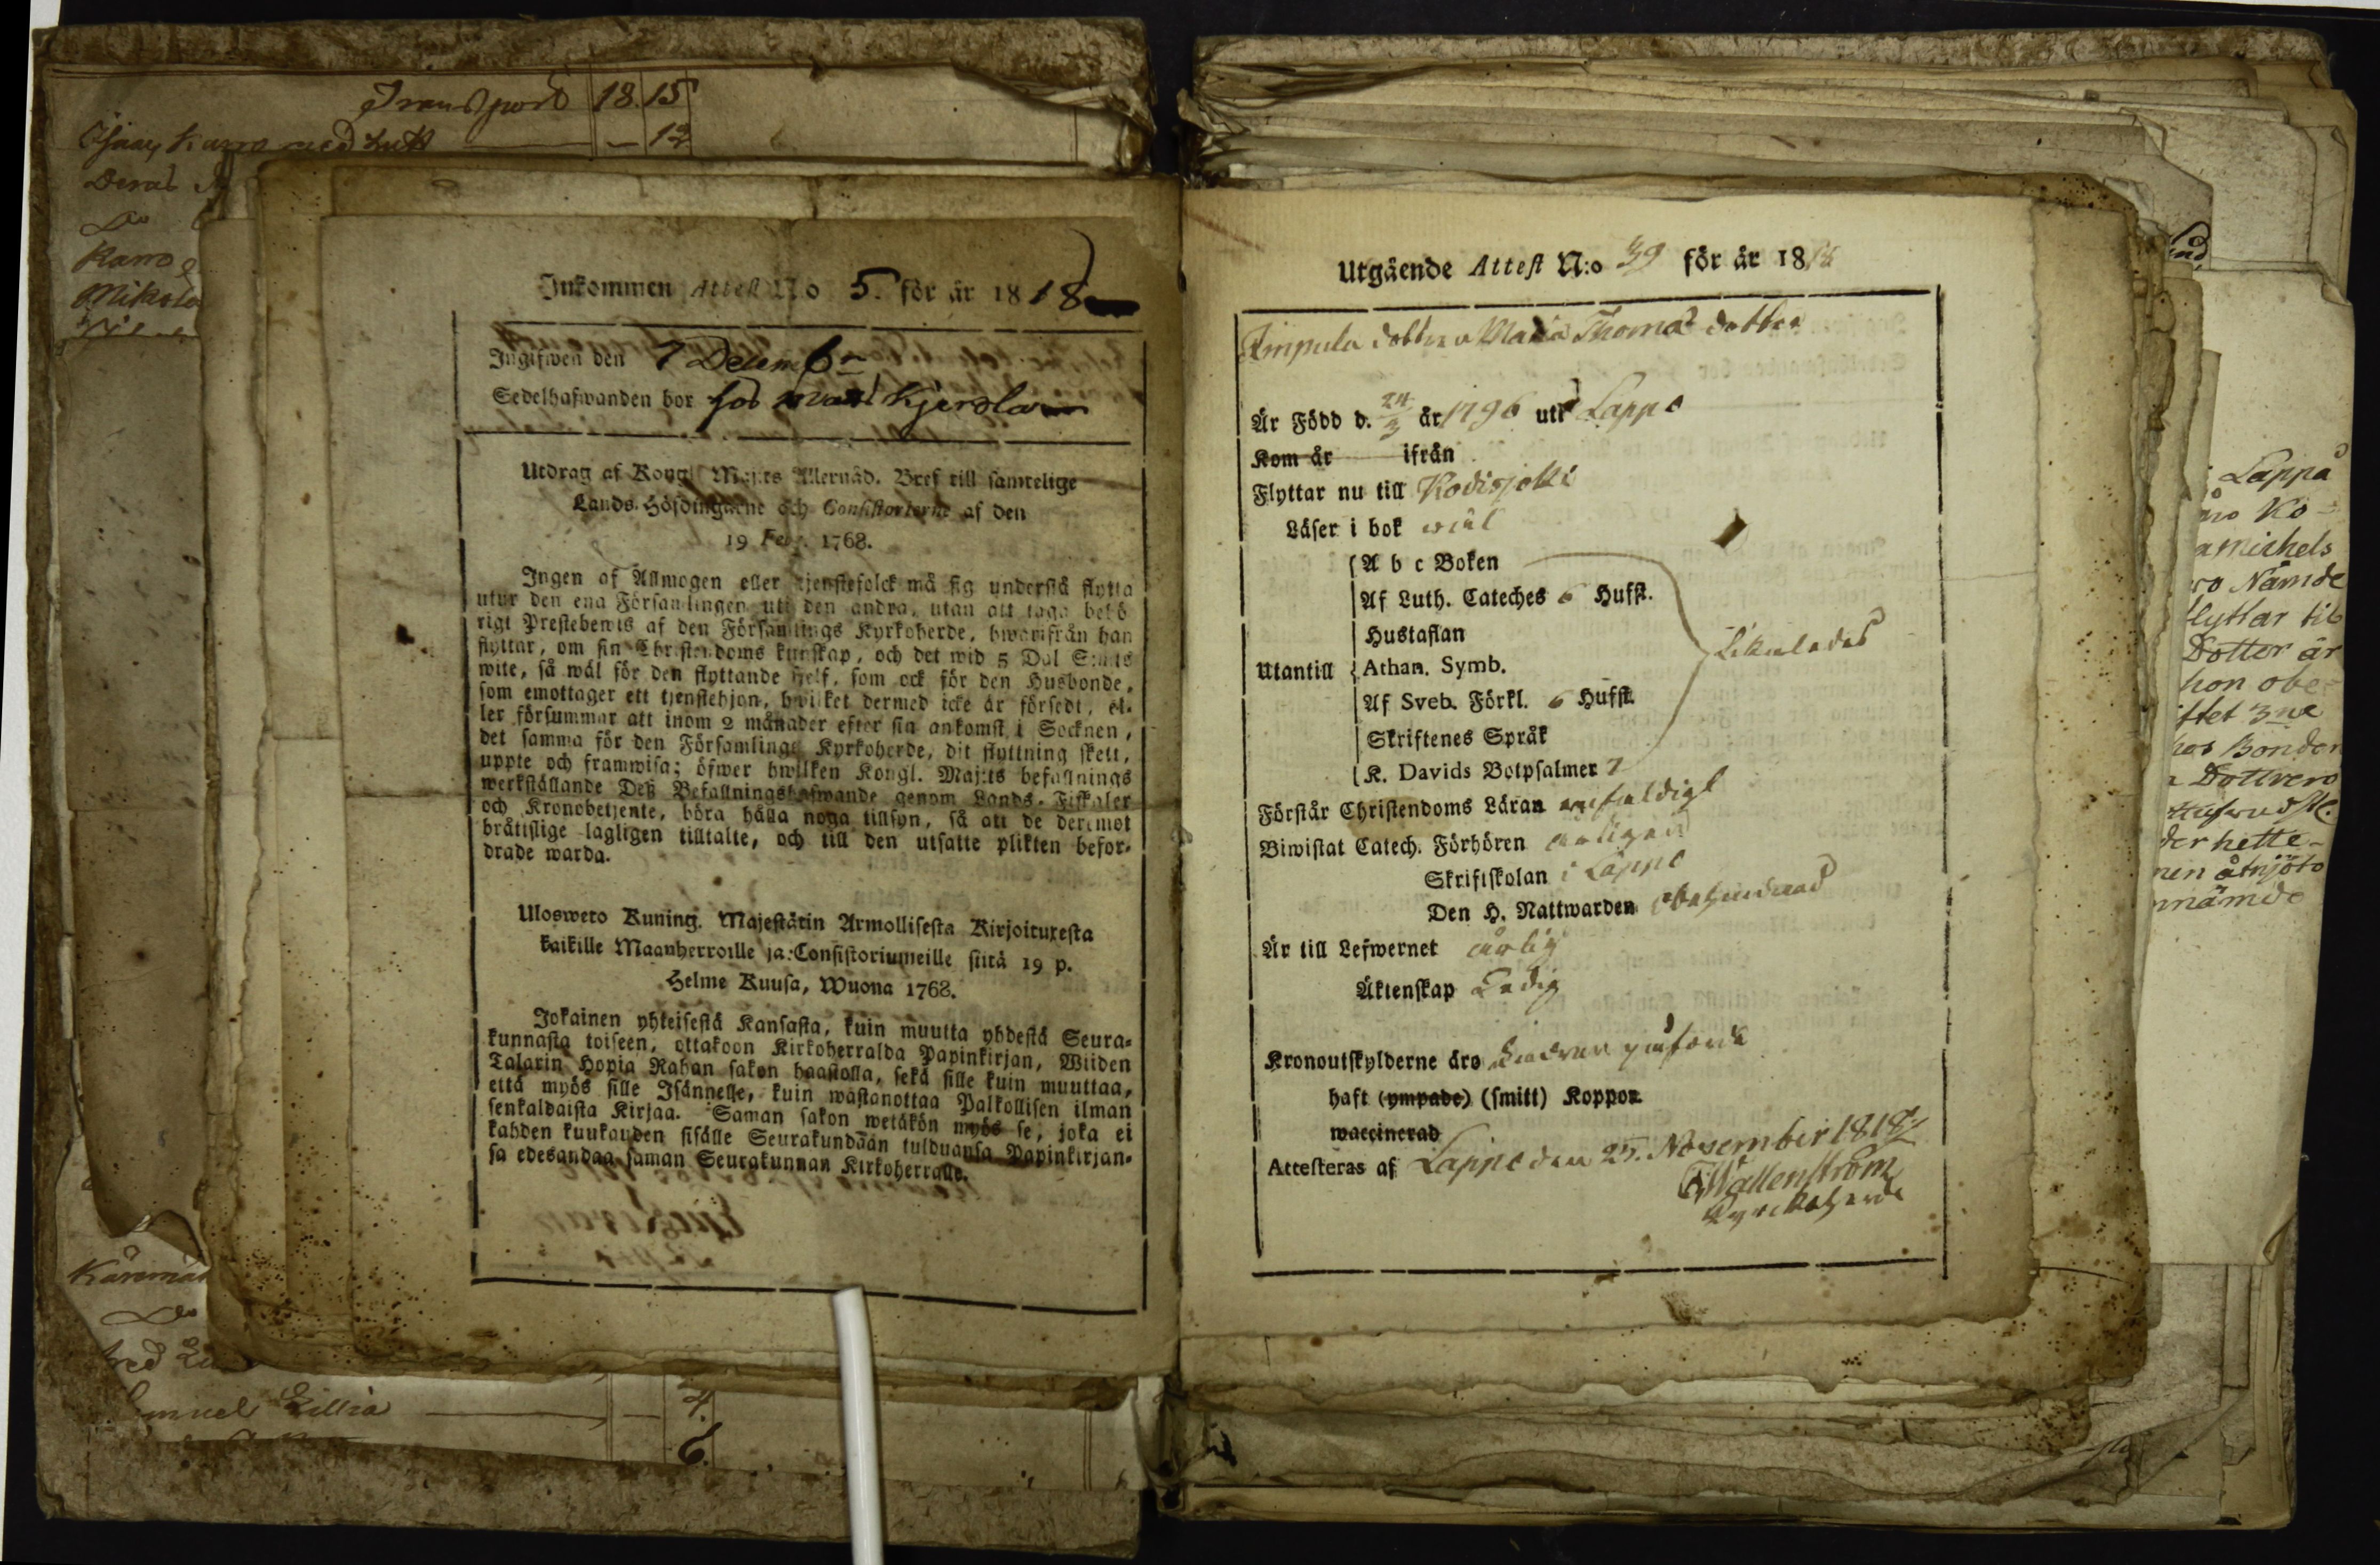 Transport 18. 15
Deras
Do
Karro
Mikola
Inkommen Attest N:o 5. för år 1818
Ingifwen den 7 Decemb:r
Sedelhafwanden bor hos
Utdrag af Kongl. Maj:ts Allernåd. Bref till samtelige
Lands-Höfdingarne och Consistorierne af den
19 Febr. 1768.
Ingen af Allmogen eller tjenstefolck må sig understå flytta
utur den ena Församlingen uti den andra, utan att taga behö
rigt Prestebewis af den Församlings Kyrkoherde, hwarifrån han
flyttar, om sin Christendoms kunskap, och det wid 5 Dal S:mts
wite, så wäl för den flyttande sjelf, som ock för den Husbonde,
som emottager ett tjenstehjon, hwilket dermed icke är försedt, el-
ler försummar att inom 2 månader efter sin ankomst i Socknen,
det samma för den Församlings Kyrkoherde, dit flyttning skett,
uppte och framwisa; öfwer hwilken Kongl. Maj:ts befallnings
werkställande Deß Befallningshafwande genom Lands-Fiskaler
och Kronobetjente, böra hålla noga tillsyn, så att de deremot
bråttslige lagligen tilltalte, och till den utsatte plikten befor-
drade warda.
Ulosweto Kuning. Majestätin Armollisesta Kirjoituxesta
kaikille Maanherroille ja Consistoriumeille siitä 19 p.
Helme Kuusa, Wuona 1768.
Jokainen yhteisestä Kansasta, kuin muutta yhdestä Seura-
kunnasta toiseen, ottakoon Kirkoherralda Papinkirjan, Wiiden
Talarin Hopia Rahan sakon haastolla, sekä sille kuin muuttaa,
että myös sille Isännelle, kuin wastanottaa Palkollisen ilman
senkaldaista Kirjaa. Saman sakon wetäkön myös se, joka ei
kahden kuukauden sisälle Seurakundaan tulduansa Papinkirjan-
sa edesandaa saman Seurakunnan Kirkoherralle.
Do
Lillia
4.
6.
Utgående Attest N:o 39 för år 1818
Dottren Maria Thomas dotter
Är Född d. 24/3 år 1796 uti Lappo
Kom år ifrån
Flyttar nu till Kodisjoki
Läser i bok wäl
A b c Boken
Af Luth. Cateches 6 Hufst.
Hustaflan
Utantill Athan. Symb. Likaledes
Af Sveb. Förkl. 6 Hufst.
Skriftenes Språk
K. Davids Botpsalmer 7
Förstår Christendoms Läran enfaldigt
Biwistat Catech. Förhören
Skriftskolan i Lappo
Den H. Nattwarden obehindrad
Är till Lefwernet ärlig
Äktenskap Ledig
Kronoutskylderne äro
haft (ympade) (smitt) Koppor
waccinerad
Attesteras af Lappo den 25. November 1818
Wallenström
Kyrckoherde
Lappo
Ko-
Michels
Nämde
flyttar till
Dotter är
hon obe-
3ne
Bonden
Dottren
der hette
åtnjöto
nämde